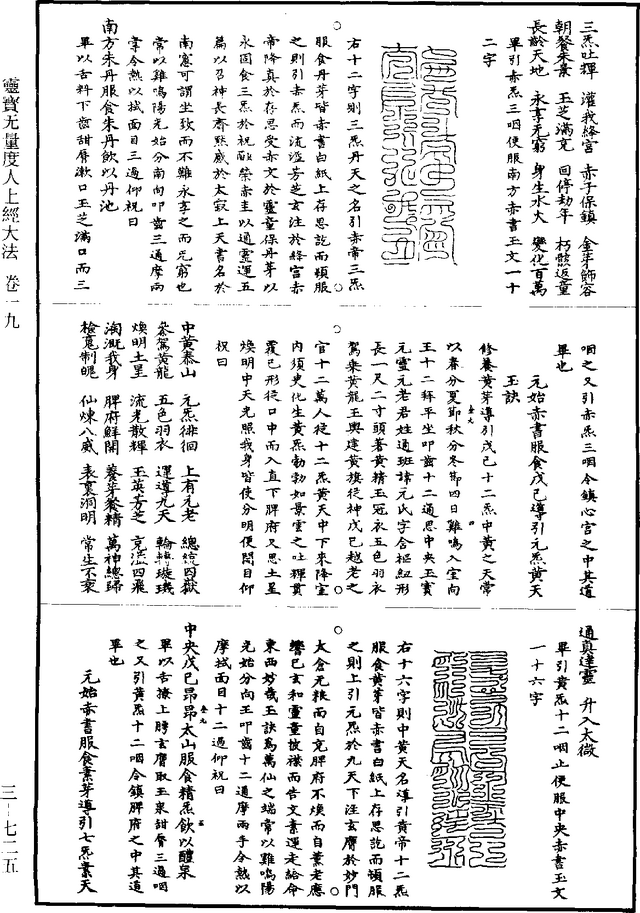 三炁吐輝　灌我絳宮　赤子保鎮　金芽飾容
朝餐朱景　玉芝滿充　回停劫年　朽骸返童
長齡天地　永享无窮　身生水火　變化百萬
畢引赤炁三咽便服南方赤書玉文一十
二字
右十二字則三炁丹天之名引赤帝三炁
服食丹芽皆赤書白紙上存思訖而頓服
之則引赤炁而流溢芳芝玄注於絳宮赤
帝降真於存思受赤文於靈童保丹芽以
永固食三炁於祝融榮赤圭以通靈運五
篇以召神長齋黙感於太寂上天書名於
南宮可謂坐致而不難永享之而无窮也
常以雞鳴陽光始分南向叩齒三通摩兩
掌令熱以拭面目三過仰祝曰
南方朱丹服食朱丹飲以丹池
畢以舌料下齒甜脣漱口玉芝滿口而三
咽之又引赤炁三咽令鎮心宮之中其道
畢也
元始赤書服食戊己導引元炁黃天
玉訣
修養黃芽導引戊己十二炁中黃之天常
以春分夏節秋分冬節四日雞鳴入室向
王十二拜平坐叩齒十二通思中央玉寶
元靈元老君姓通班諱元氏字含樞紐形
長一尺二寸頭著黃精玉冠衣五色羽衣
駕乘黃龍玉輿建黃旗從神戊己越老之
官十二萬人從十二炁黃天中下來降室
內須臾化生黃炁勃勃如景雲之吐輝貫
覆己形從口中而入直下脾府又思土星
煥明中天光照我身皆使分明便閉目仰
祝曰
中黃泰山　元炁徘徊　上有元老　總統四嶽
參駕黃龍　五色羽衣　運導九天　輪轉璇璣
煥明土星　流光散輝　玉英芳芝　充溢四飛
洶溉我身　脾府鮮開　養芽餐精　萬神總歸
檢魂制魄　仙煉八威　表裏洞明　常生不衰
通真達靈　升入太微
畢引黃炁十二咽止便服中央赤書玉文
一十六字
右十六字則中黃天名導引黃帝十二炁
服食黃芽皆赤書白紙上存思訖而頓服
之則上引元炁於九天下注玄膺於妙門
太倉无粮而自充脾府不煥而自薰老應
響已玄和靈童披襟而告文素運走給命
東西妙哉玉訣為萬仙之端常以雞鳴陽
光始分向王叩齒十二通摩兩手令熱以
摩拭面目十二過仰祝曰
中央戊己昂昂太山服食精炁飲以醴泉
畢以舌接上齶玄膺取玉泉甜脣三過咽
之又引黃炁十二咽令鎮脾府之中其道
畢也
元始赤書服食素芽導引七炁素天
靈寶无量度人上經大法　卷一九
三－七二五